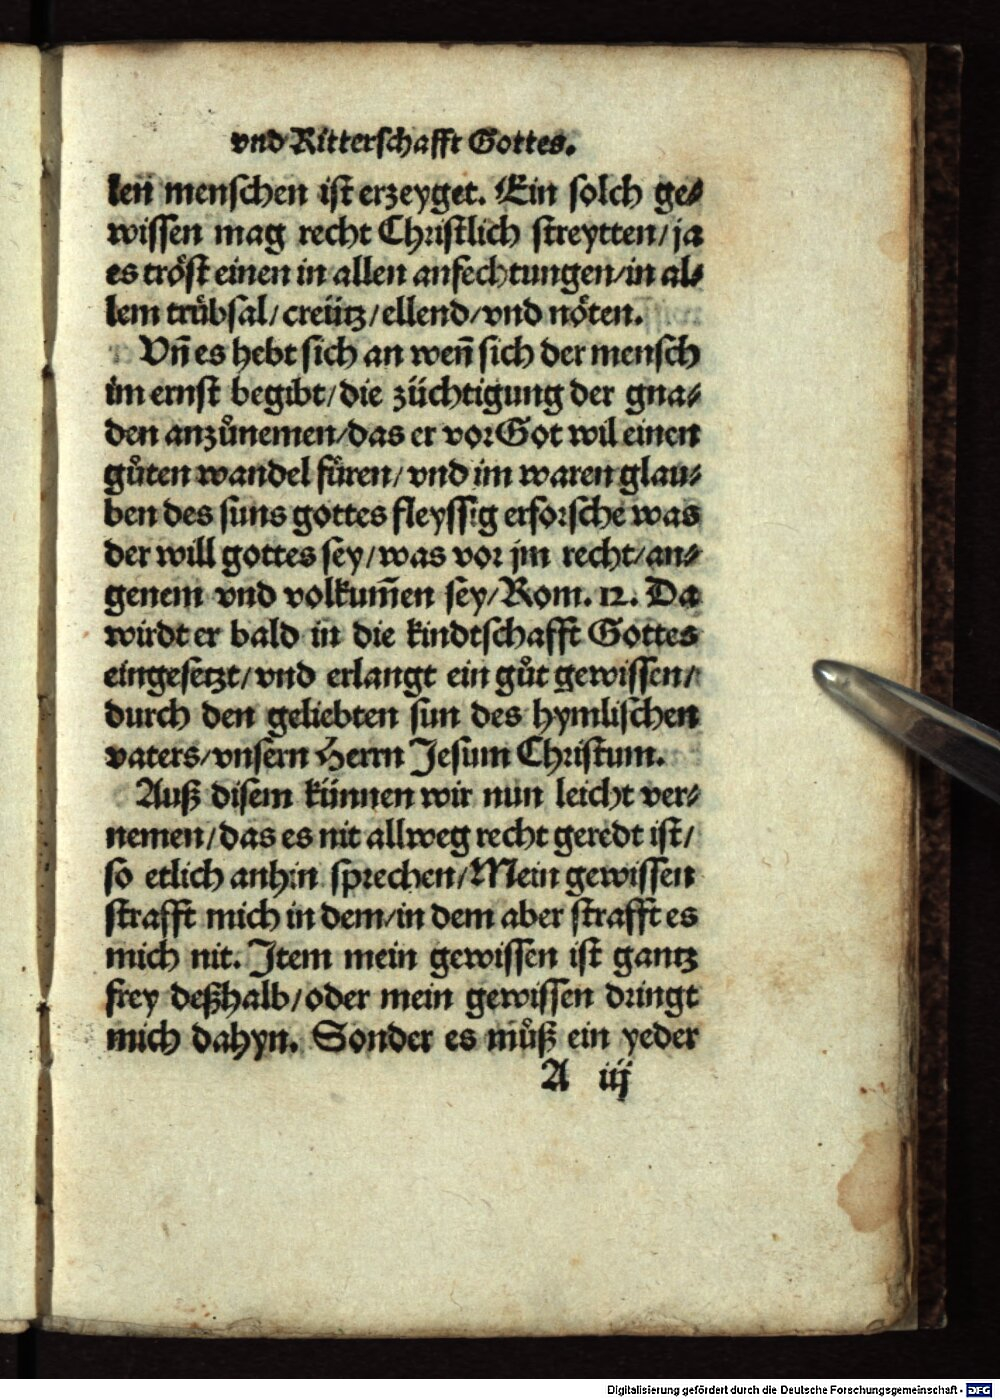 vnd Ritterschafft Gottes.
len menschen ist erzeyget. Ein solch ge⸗
wissen mag recht Christlich streytten/ ja
es tröst einen in allen anfechtungen/ in al⸗
lem trübsal/ creütz/ ellend/ vnd nöten.
Vñ es hebt sich an weñ sich der mensch
im ernst begibt/ die züchtigung der gna⸗
den anzůnemen/ das er vor Got wil einen
gůten wandel füren/ vnd im waren glau⸗
ben des suns gottes fleyssig erforsche was
der will gottes sey/ was vor jm recht/ an⸗
genem vnd volkum̃en sey/ Rom. 12. Da
wirdt er bald in die kindtschafft Gottes
eingesetzt/ vnd erlangt ein gůt gewissen/
durch den geliebten sun des hymlischen
vaters/ vnsern Herrn Jesum Christum.
Auß disem künnen wir nun leicht ver⸗
nemen/ das es nit allweg recht geredt ist/
so etlich anhin sprechen/ Mein gewissen
strafft mich in dem/ in dem aber strafft es
mich nit. Item mein gewissen ist gantz
frey deßhalb/ oder mein gewissen dringt
mich dahyn. Sonder es můß ein yeder
A iij
Digitalisierung gefördert durch die Deutsche Forschungsgemeinschaft - DFG